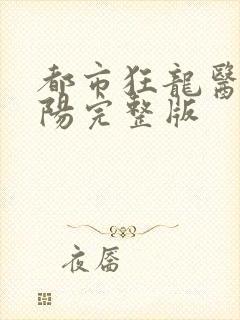 都市狂龍醫
陽完整版
夜唇